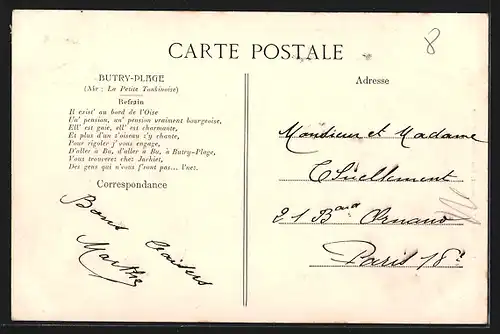 8
CARTE POSTALE
BUTRY-PLAGE
(Air : La Petite Tonkinoise)
Refrain
Il exist' au bord de l'Oise
Un' pension, un' pension vraiment bourgeoise,
Ell' est gaie, ell' est charmante,
Et plus d'un z'oiseau s'y chante,
Pour rigoler j'vous engage,
D'aller à Bu, d'aller à Bu, à Butry-Plage,
Vous trouverez chez Jarhiet,
Des gens qui n'vous f'ront pas... l'nez.
Correspondance
Bons baisers
Marthe
Adresse
Monsieur et Madame
21 Bard Ornano
Paris 18e